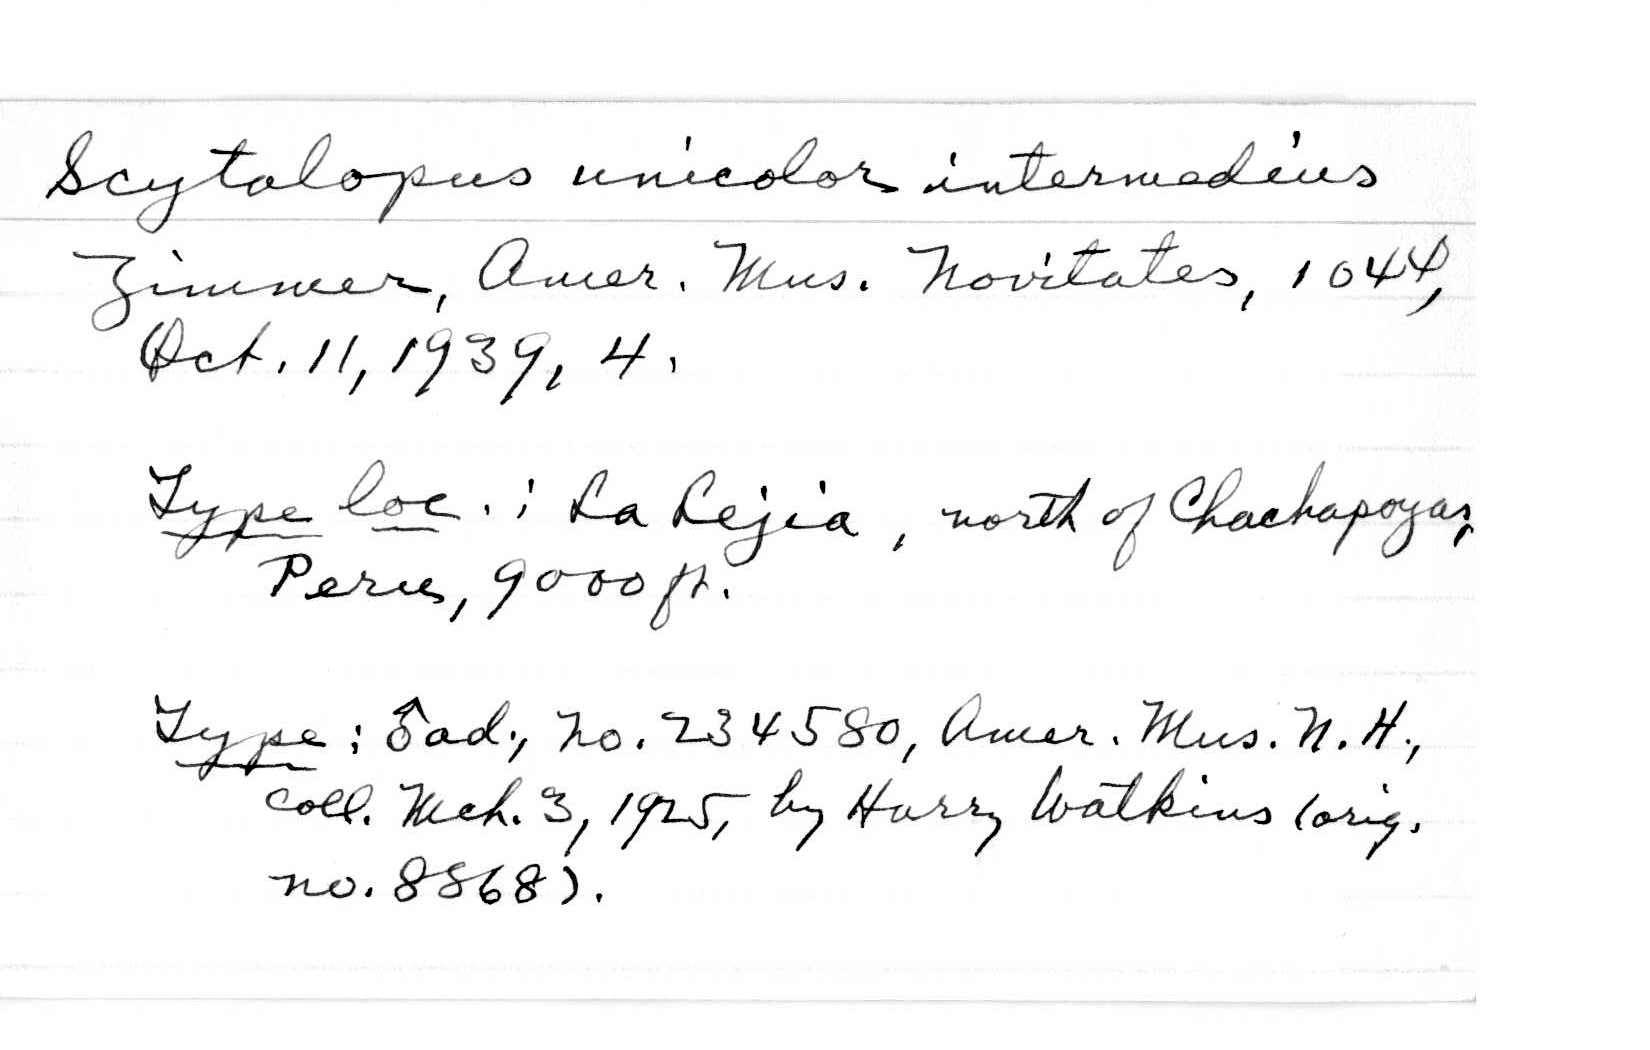 Scytalopus unicolor intermedius
Zimmer, Amer. Mus. Novitates, 1044,
Oct. 11, 1939, 4.
Type loc.: La Lejia, north of Chachapoyas,
Peru, 9000 ft.
Type: ♂ ad., no. 234580, Amer. Mus. N. H.,
coll. Mch. 3, 1925, by Harry Watkins (orig.
no. 8868).